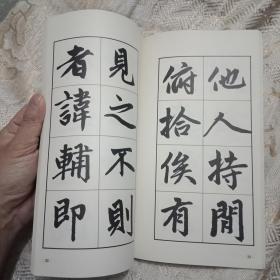 他人持閒
俯拾俟有
見之不則
者諱輔即